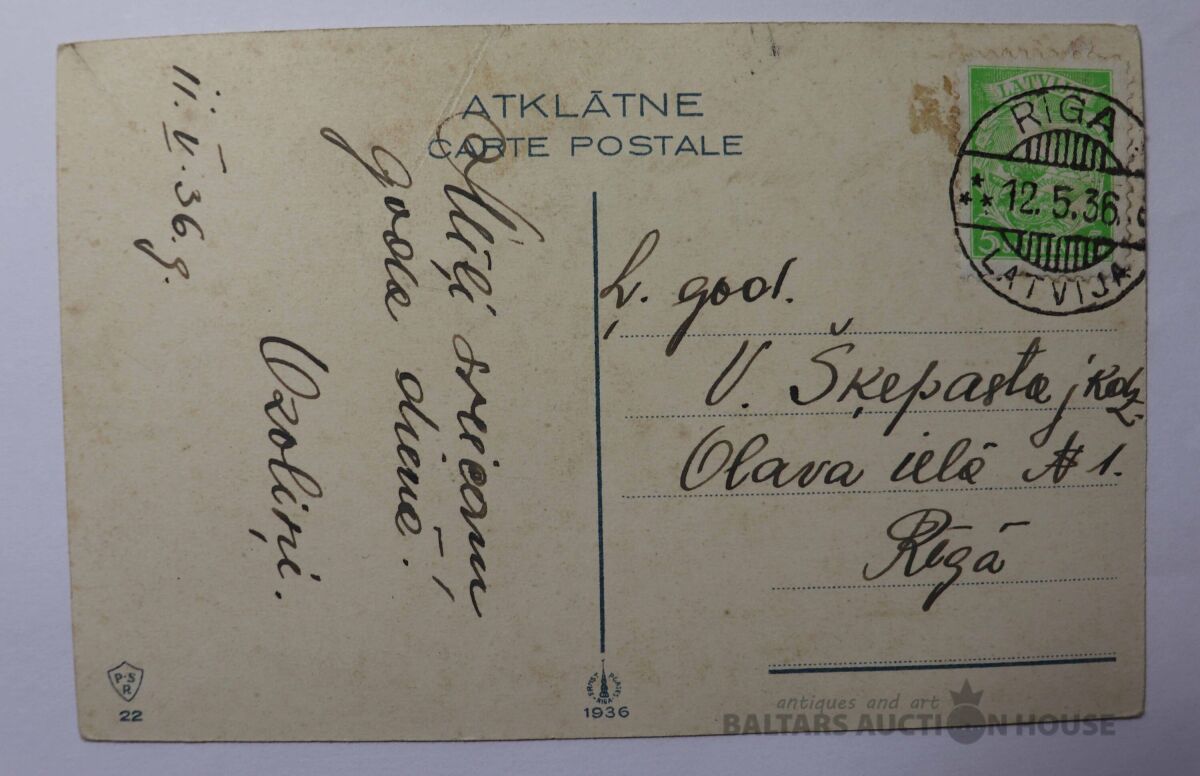 ATKLĀTNE
CARTE POSTALE
11. V. 36. g.
Mīļi sveicam,
goda dienā.
Ozoliņi.
LATVIJA
RĪGA
12. 5. 36.
LATVIJA
5
Ļ. god.
V. Šķepasta j kdz.
Olava ielā № 1.
Rīgā
P.S.R.
22
RĪGA
1936
antiques and art
BALTARS AUCTION HOUSE